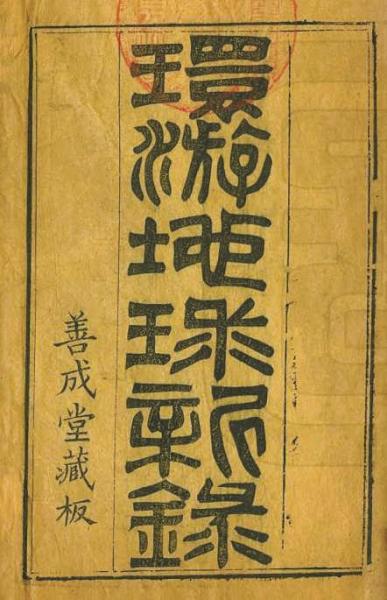 環游地球新錄
善成堂藏板